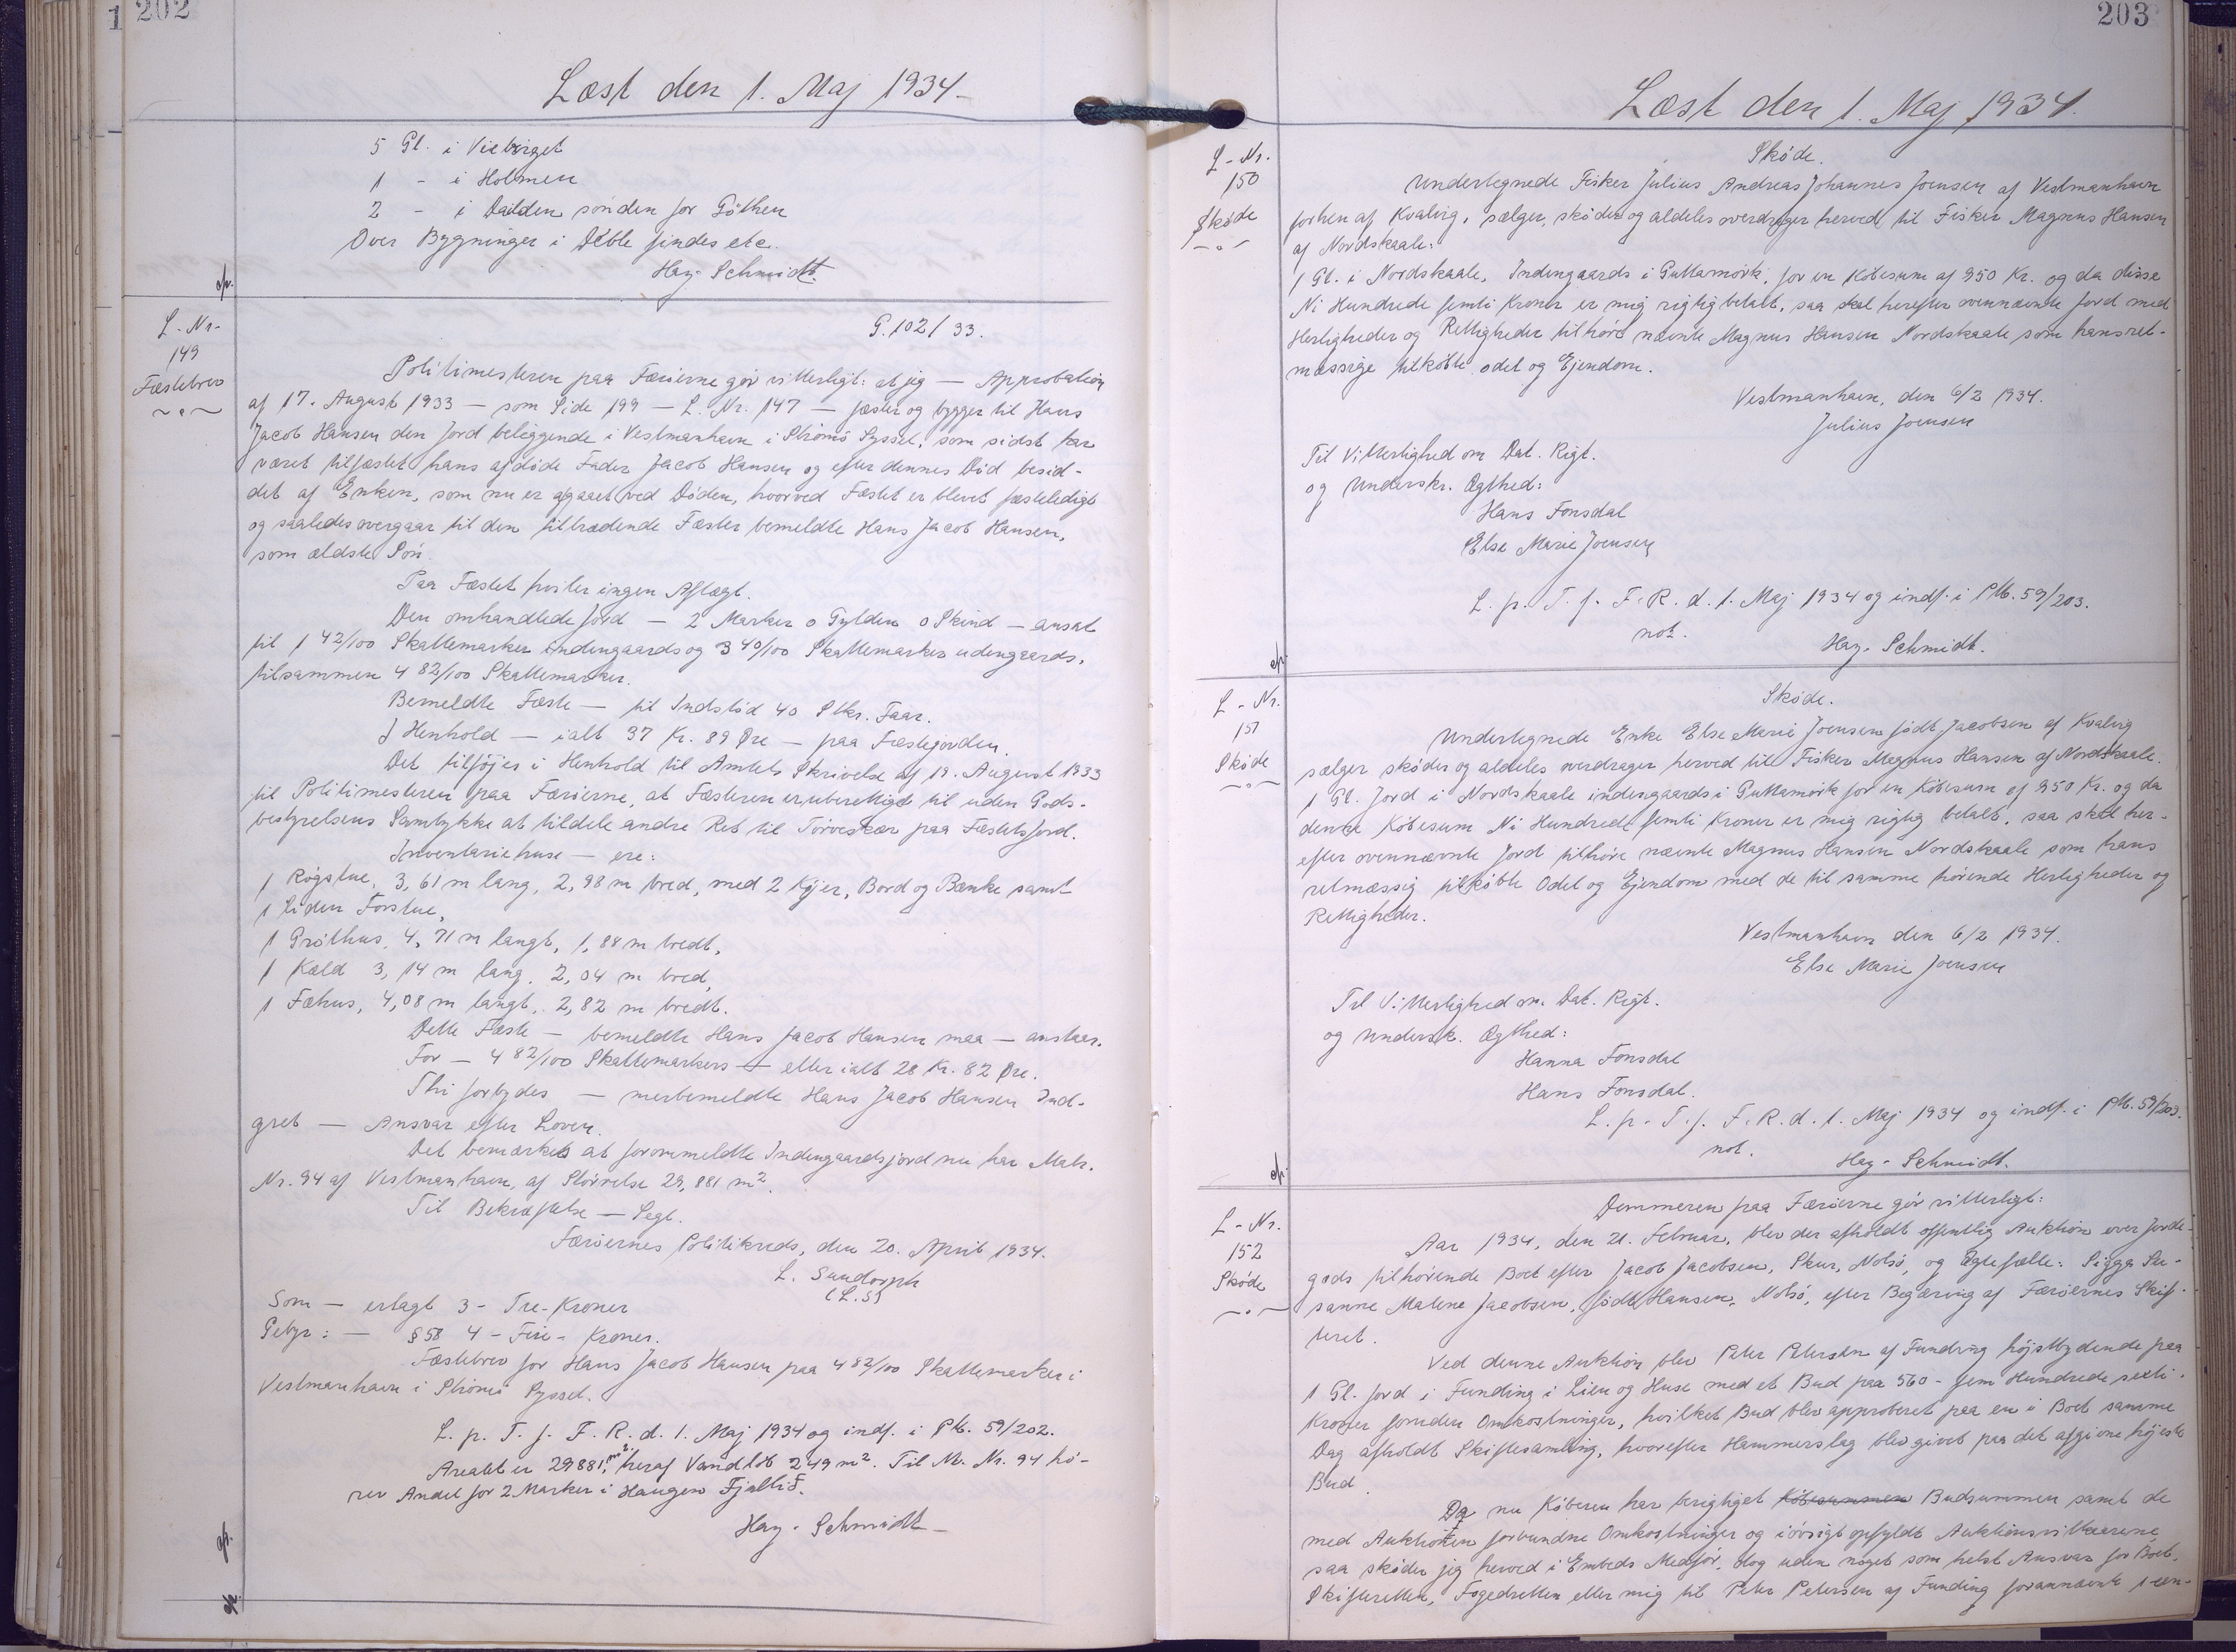 202
Læst den 1. Maj 1934.
5 Gl. i Viebriget
1 - i Holmen
2 - i Dailden sönden for Göthen
Over Bygninger i Deble findes etc.
Hay-Schmidt.
L-Nr.
149
Fæstebrev
G. 102/33.
Politimesteren paa Færöerne gör vitterligt: at jeg — Approbation
af 17. August 1933 — som Side 199 — L. Nr. 147 — fæster og bygger til Hans
Jacob Hansen den Jord beliggende i Vestmanhavn i Strömö Syssel, som sidst har
været tilfæstet hans afdöde Fader Jacob Hansen og efter dennes Död besid-
det af Enken, som nu er afgaaet ved Döden, hvorved Fæstet er blevet fæsteledigt
og saaledes overgaar til den tiltrædende Fæster bemeldte Hans Jacob Hansen,
som ældste Sön.
Paa Fæstet hviler ingen Aftægt.
Den omhandlede Jord — 2 Marker 0 Gylden 0 Skind — ansat
til 1 42/100 Skattemarker indengaards og 3 40/100 Skattemarker udengaards,
tilsammen 4 82/100 Skattemarker.
Bemeldte Fæste — til Indstöd 40 Stkr. Faar.
I Henhold — ialt 37 Kr. 89 Øre — paa Fæstegorden.
Det tilföjes i Henhold til Amtets Skrivelse af 19. August 1933
til Politimesteren paa Færöerne, at Fæsteren er uberettiget til uden Gods-
bestyrelsens Samtykke at tildele andre Ret til Törveskær paa Fæstets Jord.
Inventariehuse — ere:
1 Rögstue, 3,61 m lang, 2,98 m bred, med 2 Köjer, Bord og Bænke samt
1 liden Forstue,
1 Gröthus, 4,71 m langt, 1,88 m bredt,
1 Kæld 3,14 m lang, 2,04 m bred,
1 Fæhus, 4,08 m langt, 2,82 m bredt.
Dette Fæste — bemeldte Hans Jacob Hansen maa — anstaar.
For — 4 82/100 Skattemarkers — eller ialt 28 Kr. 82 Øre.
Thi forbydes — merbemeldte Hans Jacob Hansen Ind-
greb — Ansvar efter Loven.
Det bemærkes at forommeldte Indengaardsjord nu har Matr.
Nr. 94 af Vestmanhavn, af Störrelse 29,881 m2.
Til Bekræftelse — Segl.
Færöernes Politikreds, den 20. April 1934.
L. Sundorph
(L.S)
Som — erlagt 3 - Tre - Kroner
Gebyr: — §58 4 - Fire - Kroner.
Fæstebrev for Hans Jacob Hansen paa 4 82/100 Skattemarker i
Vestmanhavn i Strömö Syssel.
L. p. T. f. F. R. d. 1. Maj 1934 og indf. i PM. 59/202.
Arealet er 29881 m2, heraf Vandlöb 249 m2. Til M. Nr. 94 hö-
rer Andel for 2 Marker i Haugen Fjallið.
Hay-Schmidt
203
Læst den 1. Maj 1934.
L-Nr.
150
Sköde
Sköde.
Undertegnede Fisker Julius Andreas Johannes Joensen af Vestmanhavn
forhen af Kvalvig, sælger, sköder og aldeles overdrager herved til Fisker Magnus Hansen
af Nordskaale:
1 Gl. i Nordskaale, Indengaards i Guttamörk, for en Köbesum af 950 Kr. og da disse
Ni Hundrede femti Kroner er mig rigtig betalt, saa skal herefter ovennævnte Jord med
Herligheder og Rettigheder tilhöre nævnte Magnus Hansen Nordskaale som hans ret-
mæssige tilköbte odel og Ejendom.
Vestmanhavn, den 6/2 1934.
Julius Joensen
Til Vitterlighed om Dat. Rigt.
og Underskr. Ægthed:
Hans Fonsdal
Else Marie Joensen
L. p. T. f. F. R. d. 1. Maj 1934 og indf. i PM. 59/203.
not.
Hay-Schmidt.
L-Nr.
151
Sköde
Sköde.
Undertegnede Enke Else Marie Joensen födt Jacobsen af Kvalvig
sælger sköder og aldeles overdrager herved til Fisker Magnus Hansen af Nordskaale.
1 Gl. Jord i Nordskaale indengaards i Guttamörk for en Köbesum af 950 Kr. og da
denne Köbesum Ni Hundrede femti Kroner er mig rigtig betalt, saa skal her-
efter ovennævnte Jord tilhöre nævnte Magnus Hansen Nordskaale som hans
retmæssig tilköbte Odel og Ejendom med de til samme hörende Herligheder og
Rettigheder.
Vestmanhavn den 6/2 1934.
Else Marie Joensen
Til Vitterlighed om Dat. Rigt.
og Undersk. Ægthed:
Hanna Fonsdal
Hans Fonsdal.
L. p. T. f. F. R. d. 1. Maj 1934 og indf. i PM. 59/203.
not.
Hay-Schmidt.
L-Nr.
152
Sköde
Dommeren paa Færöerne gör vitterligt:
Aar 1934, den 21. Februar, blev der afholdt offentlig Auktion over Jorde-
gods tilhörende Boet efter Jacob Jacobsen, Skur, Nolsö, og Ægtefælle: Sigga Su-
sanne Malene Jacobsen, födt Hansen, Nolsö, efter Begæring af Færöernes Skif-
teret.
Ved denne Auktion blev Peter Petersen af Funding höjstbydende paa
1 Gl. Jord i Funding i Lien og Huse med et Bud paa 560 - fem Hundrede sexti -
Kroner foruden Omkostninger, hvilket Bud blev approberet paa en i Boet samme
Dag afholdt Skiftesamling, hvorefter Hammerslag blev givet paa det afgivne höjeste
Bud.
Da nu Köberen har berigtiget Köbesummen Budsummen samt de
med Auktionen forbundne Omkostninger og iövrigt opfyldt Auktionsvilkaarene,
saa sköder jeg herved i Embeds Medför, dog uden noget som helst Ansvar for Boet,
Skifteretten, Fogedretten eller mig til Peter Petersen af Funding forannævnte 1 een-